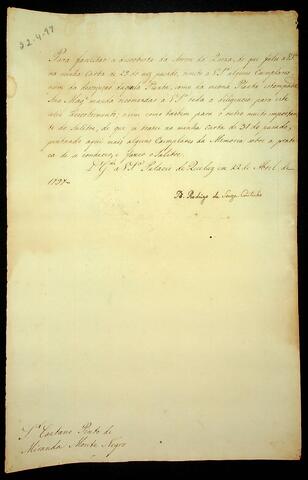 22.4.97
Para facilitar a descoberta da Arvore da Quina, de que falei a VS.ª
na minha Carta de 29 do mez passado, remeto a VS.ª alguns Exemplares,
nom da descripção daquela Planta, como da mesma Planta estampada.
Sua Mag.e manda recomendar a VS.ª toda a diligencia para este
util descobrimento, assim como tambem para o outro muito importante
do Salitre, de que se tratou na minha Carta de 31 do passado,
juntando aqui mais alguns Exemplares da Memoria sobre a pratica
de se conhecer, e fazer o Salitre.
D.s G.e a VS.ª Palacio de Queluz em 22 de Abril de
1797
D. Rodrigo de Souza Coutinho
S.r Caetano Pinto de
Miranda Monte Negro